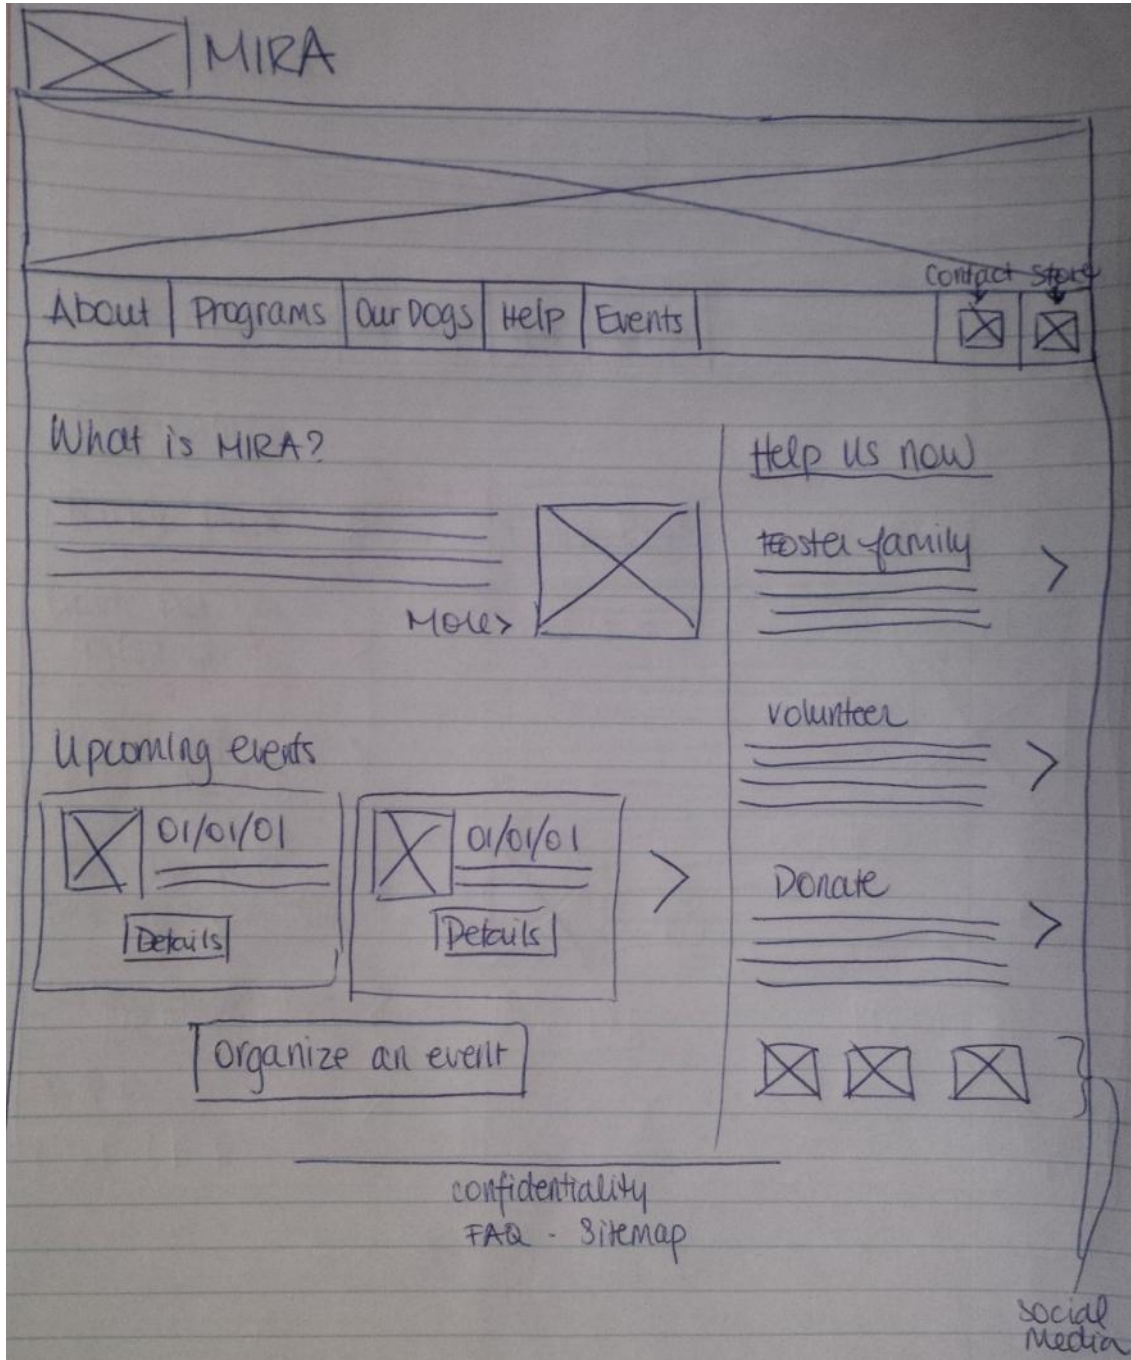 MIRA
Contact Store
About Programs Our Dogs Help Events
What is MIRA?
More>
Upcoming events
01/01/01
Details
01/01/01
Details
>
Organize an event
Help us now
Foster family
>
Volunteer
>
Donate
>
confidentiality
FAQ - Sitemap
social
Media